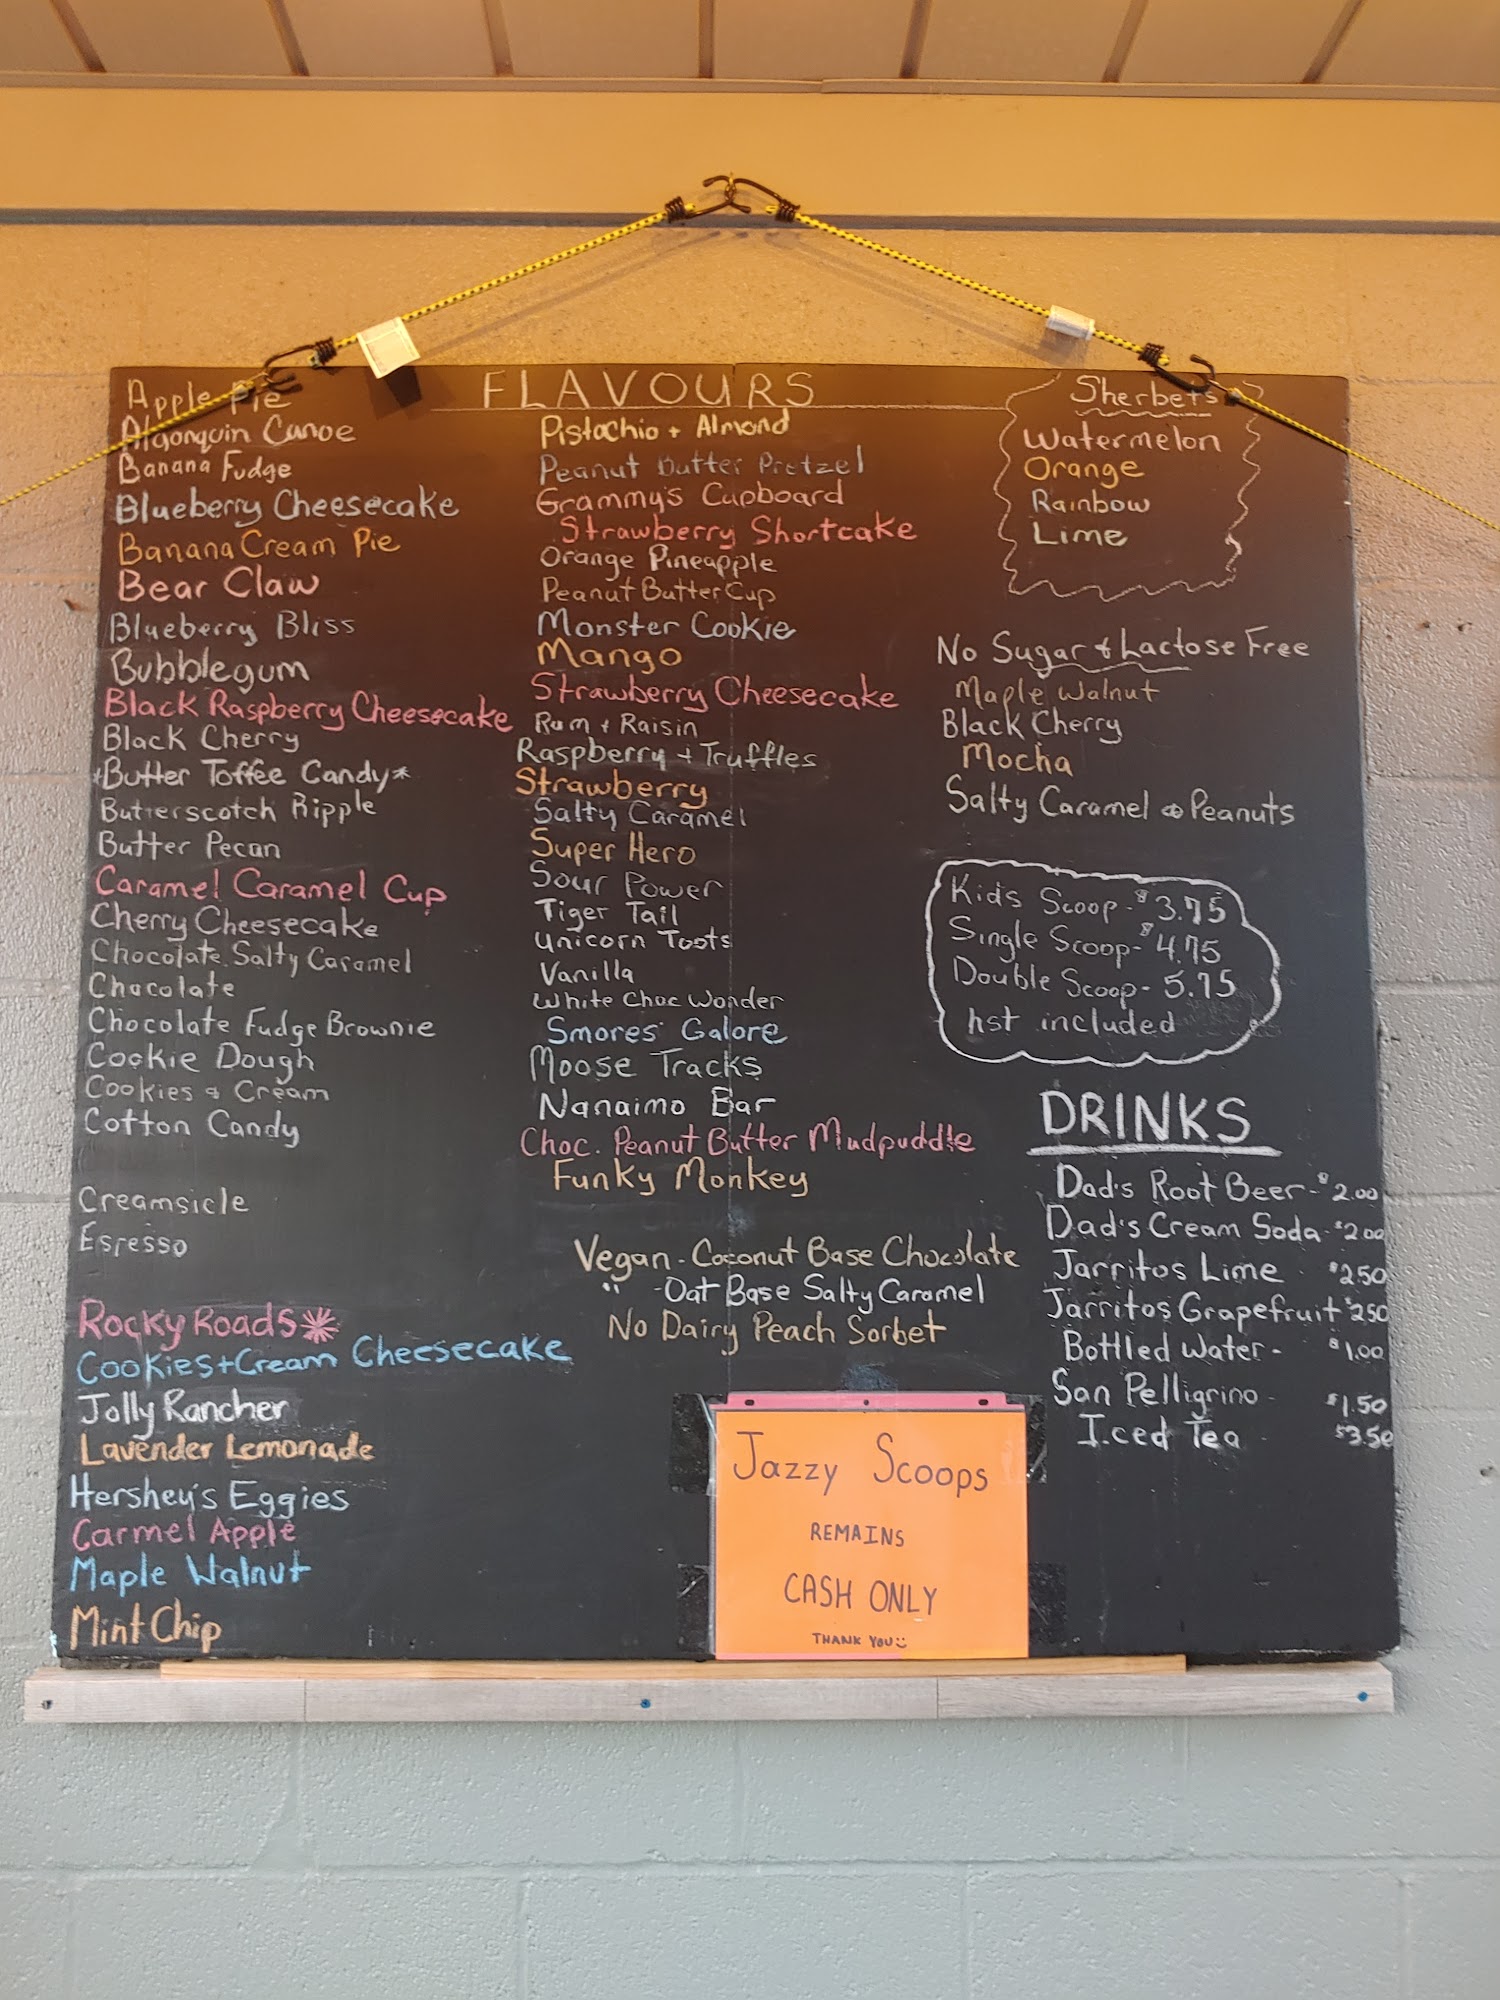 FLAVOURS
Apple Pie
Algonquin Canoe
Banana Fudge
Blueberry Cheesecake
Banana Cream Pie
Bear Claw
Blueberry Bliss
Bubblegum
Black Raspberry Cheesecake
Black Cherry
*Butter Toffee Candy*
Butterscotch Ripple
Butter Pecan
Caramel Caramel Cup
Cherry Cheesecake
Chocolate Salty Caramel
Chocolate
Chocolate Fudge Brownie
Cookie Dough
Cookies & Cream
Cotton Candy
Creamsicle
Espresso
Rocky Roads
Cookies+Cream Cheesecake
Jolly Rancher
Lavender Lemonade
Hershey's Eggies
Carmel Apple
Maple Walnut
Mint Chip
Pistachio + Almond
Peanut Butter Pretzel
Grammy's Cupboard
Strawberry Shortcake
Orange Pineapple
Peanut Butter Cup
Monster Cookie
Mango
Strawberry Cheesecake
Rum + Raisin
Raspberry + Truffles
Strawberry
Salty Caramel
Super Hero
Sour Power
Tiger Tail
Unicorn Toots
Vanilla
White Choc Wonder
Smores Galore
Moose Tracks
Nanaimo Bar
Choc. Peanut Butter Mudpuddle
Funky Monkey
Vegan - Coconut Base Chocolate
" - Oat Base Salty Caramel
No Dairy Peach Sorbet
Sherbets
Watermelon
Orange
Rainbow
Lime
No Sugar & Lactose Free
Maple Walnut
Black Cherry
Mocha
Salty Caramel & Peanuts
Kid's Scoop - $3.75
Single Scoop - $4.75
Double Scoop - 5.75
hst included
DRINKS
Dad's Root Beer - $2.00
Dad's Cream Soda - $2.00
Jarritos Lime - $2.50
Jarritos Grapefruit $2.50
Bottled Water - $1.00
San Pelligrino - $1.50
Iced Tea - $3.50
Jazzy Scoops
REMAINS
CASH ONLY
THANK YOU